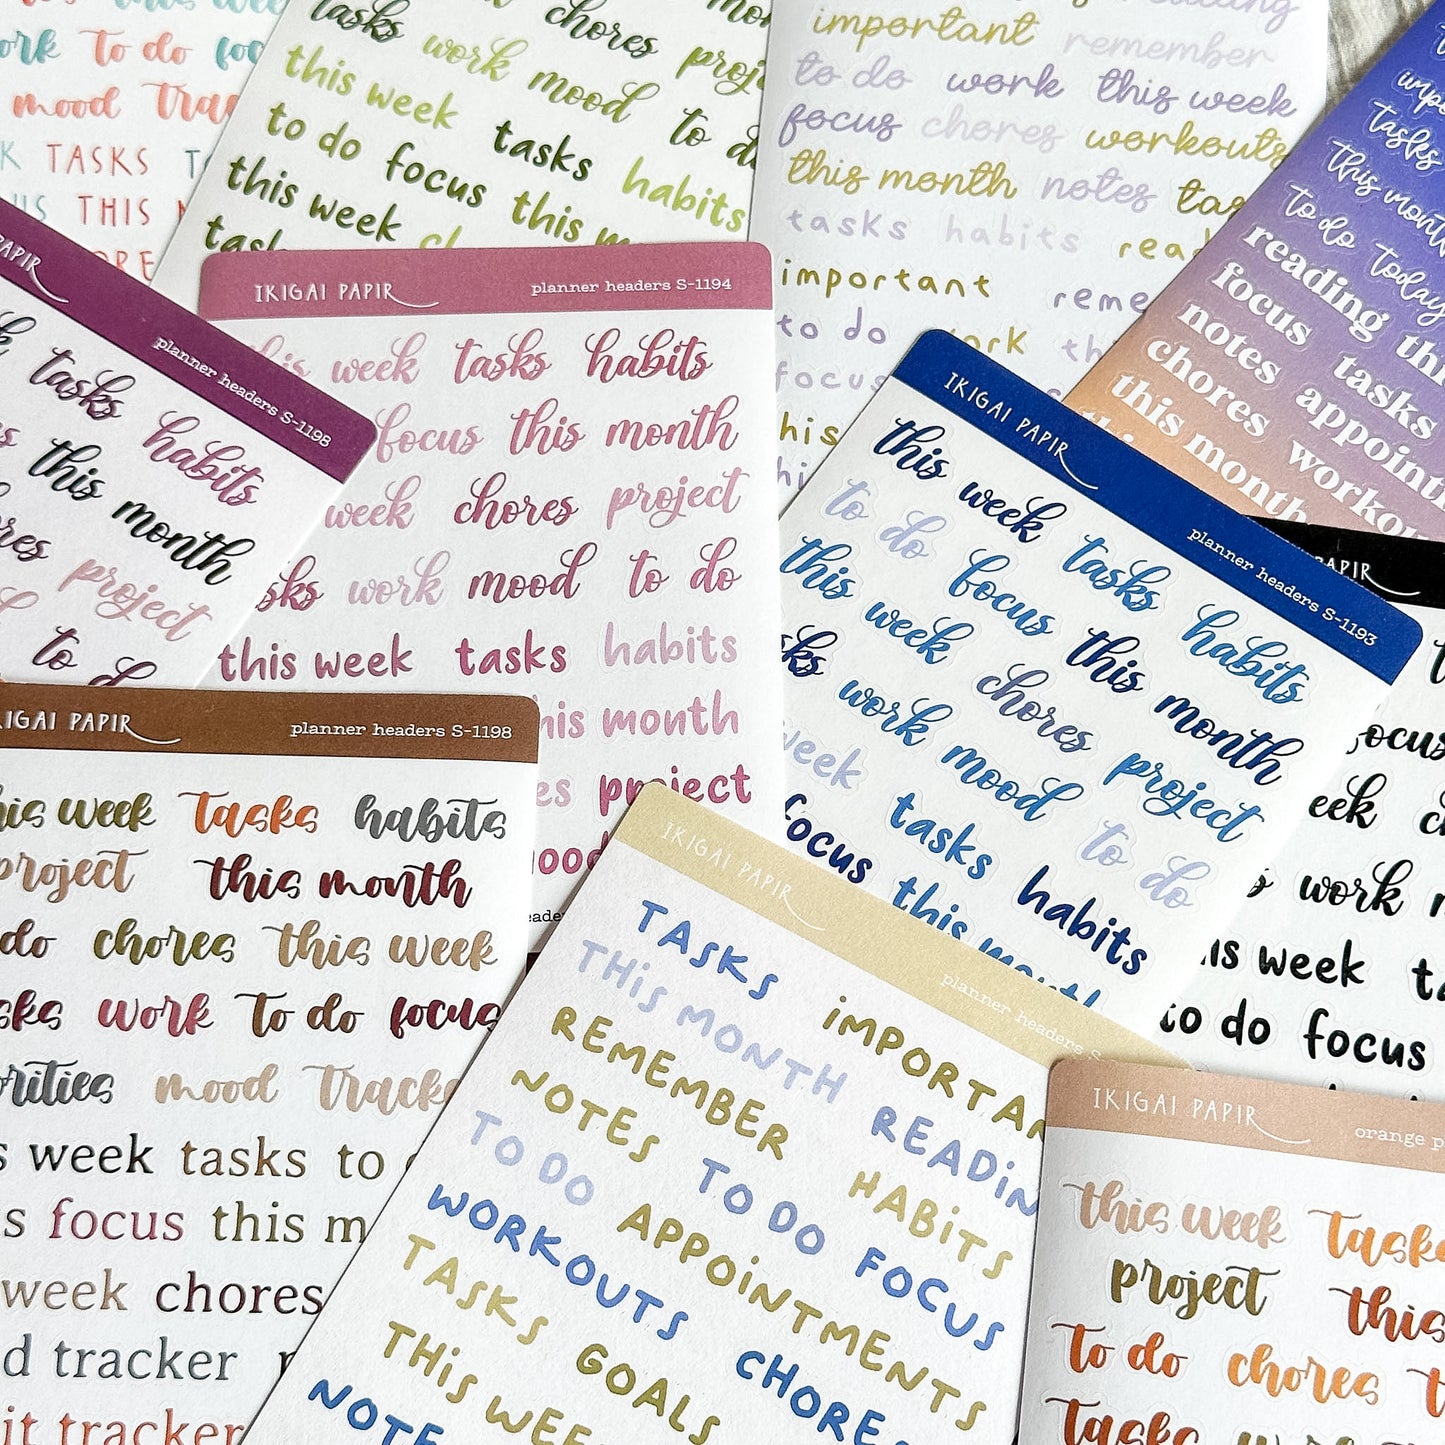 this week
work to do
mood
TASKS
THIS
tasks work chores
this week mood
to do focus tasks habits
this week this
important remember
to do work this week
focus chores workouts
this month notes
tasks habits
important
to do work
focus
tasks
this month
to do today
reading
focus tasks
notes
chores
this month
IKIGAI PAPIR planner headers S-1194
week tasks habits
focus this month
week chores project
work mood to do
this week tasks habits
this month
project
PAPIR
planner headers S-1198
tasks habits
this month
project
to
IKIGAI PAPIR
planner headers S-1193
this week tasks habits
to do focus this month
this week chores project
work mood to do
week tasks habits
focus this month
PAPIR
work
week
to do focus
PAPIR planner headers S-1198
week tasks habits
project this month
do chores this week
work to do focus
mood
week tasks to
focus this
week chores
tracker
tracker
IKIGAI PAPIR
planner headers
TASKS
THIS MONTH
REMEMBER
NOTES TO DO HABITS
TO DO APPOINTMENTS FOCUS
WORKOUTS
TASKS GOALS
THIS
IKIGAI PAPIR orange
this week
project this
to do chores
tasks